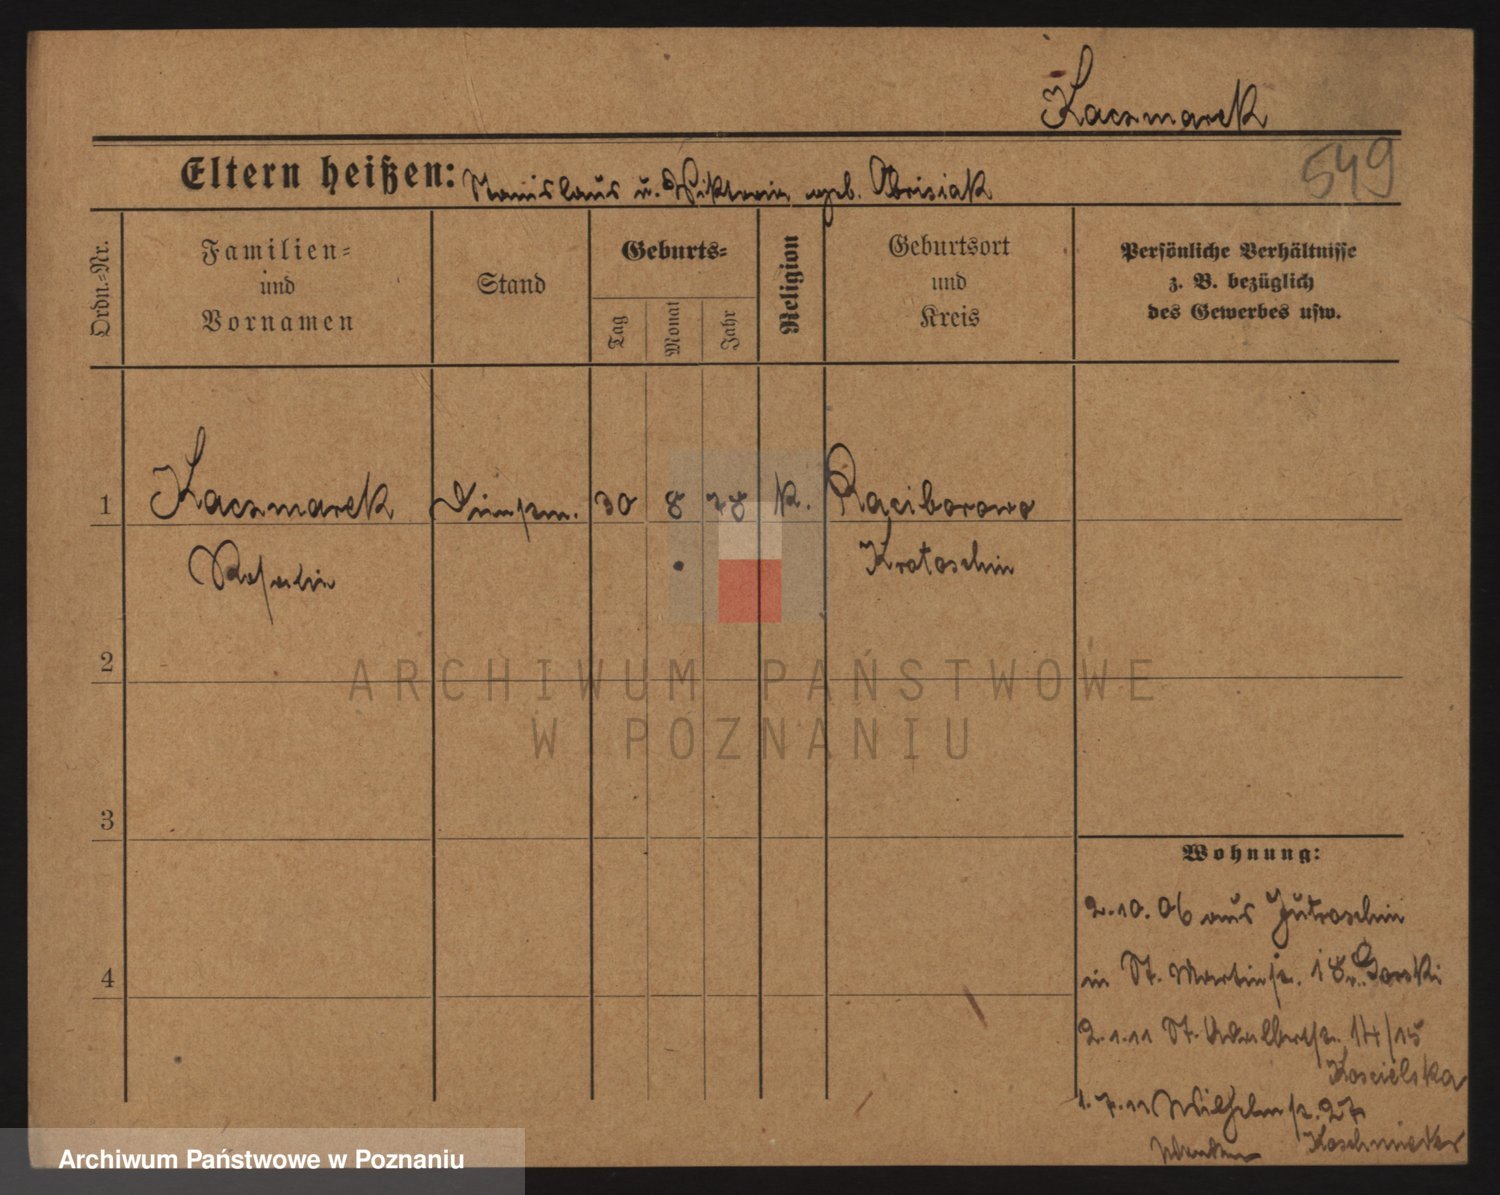 Kaczmarek
549
Eltern heißen: Stanislaus u. Viktoria geb. Obrisiak
Ordn.-Nr.
Familien-
und
Vornamen
Stand
Geburts-
Tag
Monat
Jahr
Religion
Geburtsort
und
Kreis
Persönliche Verhältnisse
z. B. bezüglich
des Gewerbes usw.
1
Kaczmarek
30 8 78 k.
Raciborowo
Krotoschin
2
3
4
Wohnung:
2.10.06 aus Jutroschin
in St. Martinstr. 18 b. Gorski
2.1.11 St. Adalbertstr. 14/15
Koscielska
1.7.11 Wilhelmstr. 27
ARCHIWUM PAŃSTWOWE
W POZNANIU
Archiwum Państwowe w Poznaniu